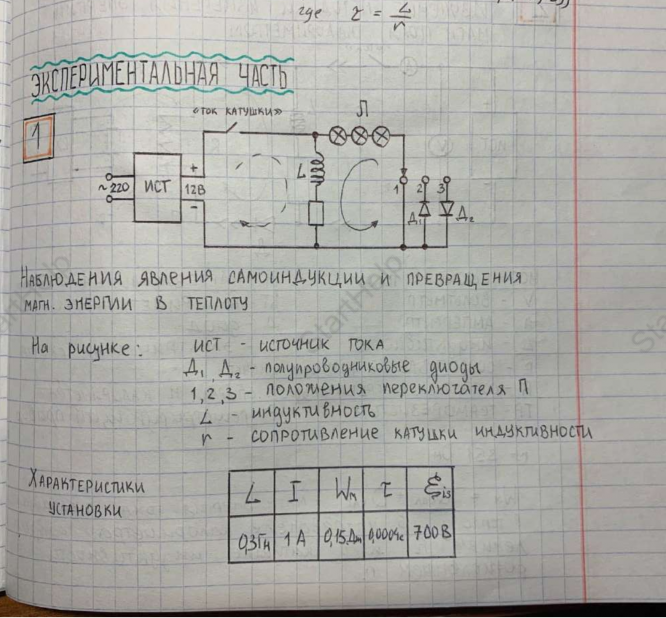 где τ = L/r
ЭКСПЕРИМЕНТАЛЬНАЯ ЧАСТЬ
1
«ТОК КАТУШКИ»
Л
~220
ИСТ
+
12В
-
L
1 2 3
Д₁ Д₂
НАБЛЮДЕНИЯ ЯВЛЕНИЯ САМОИНДУКЦИИ И ПРЕВРАЩЕНИЯ
МАГН. ЭНЕРГИИ В ТЕПЛОТУ
На рисунке: ИСТ - источник тока
Д₁, Д₂ - полупроводниковые диоды
1,2,3 - положения переключателя П
L - индуктивность
r - сопротивление катушки индуктивности
Характеристики
установки
L I Wм τ ξis
0,3Гн 1 А 0,15Дж 0,0004с 700В
StartHelp